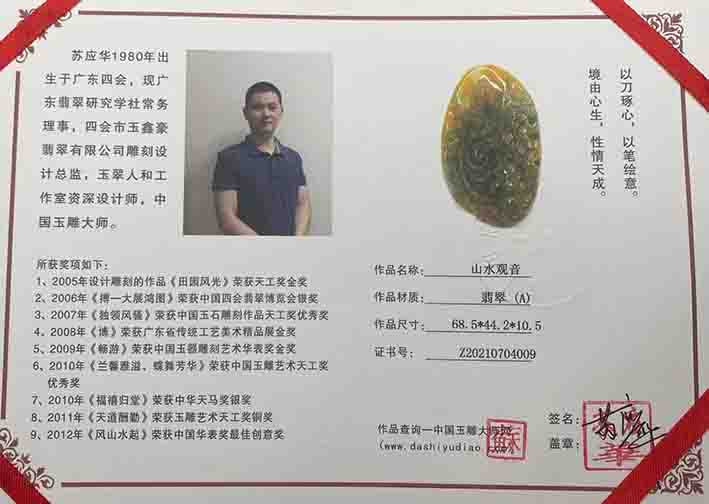 苏应华1980年出
生于广东四会，现广
东翡翠研究学社常务
理事，四会市玉鑫豪
翡翠有限公司雕刻设
计总监，玉翠人和工
作室资深设计师，中
国玉雕大师。
以刀琢心，以笔绘意。
境由心生，性情天成。
所获奖项如下：
1、2005年设计雕刻的作品《田园风光》荣获天工奖金奖
2、2006年《搏一大展鸿图》荣获中国四会翡翠博览会银奖
3、2007年《独领风骚》荣获中国玉石雕刻作品天工奖优秀奖
4、2008年《博》荣获广东省传统工艺美术精品展金奖
5、2009年《畅游》荣获中国玉器雕刻艺术华表奖金奖
6、2010年《兰馨雅溢、蝶舞芳华》荣获中国玉雕艺术天工奖
优秀奖
7、2010年《福禧归堂》荣获中华天马奖银奖
8、2011年《天道酬勤》荣获玉雕艺术天工奖铜奖
9、2012年《风山水起》荣获中国华表奖最佳创意奖
作品名称： 山水观音
作品材质： 翡翠（A）
作品尺寸： 68.5*44.2*10.5
证书号： Z20210704009
作品查询一中国玉雕大师网
(www.dashiyudiao.com)
签名：
盖章：